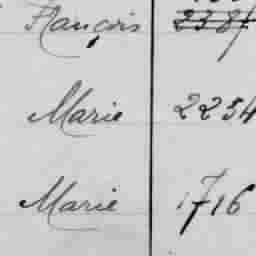 François 2387
Marie 2254
Marie 1716